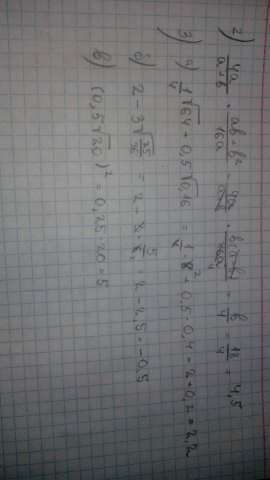 2) 4a/(a+b) · (ab+b²)/16a = 4a/(a+b) · b(a+b)/16a = b/4 = 18/4 = 4,5
3) а) 1/4 √64 + 0,5√0,16 = 1/4 · 8 + 0,5 · 0,4 = 2 + 0,2 = 2,2
б) 2 - 3√(25/36) = 2 - 3 · 5/6 = 2 - 2,5 = -0,5
в) (0,5√20)² = 0,25 · 20 = 5